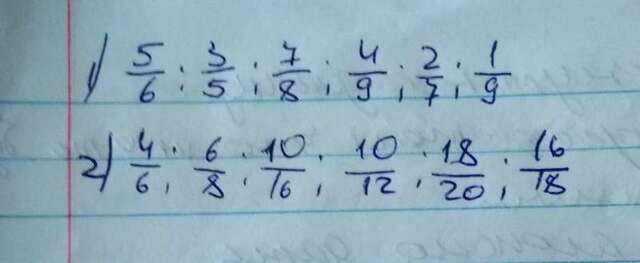 1) 5/6 ; 3/5 ; 7/8 ; 4/9 ; 2/7 ; 1/9
2) 4/6 ; 6/8 ; 10/16 ; 10/12 ; 18/20 ; 16/18